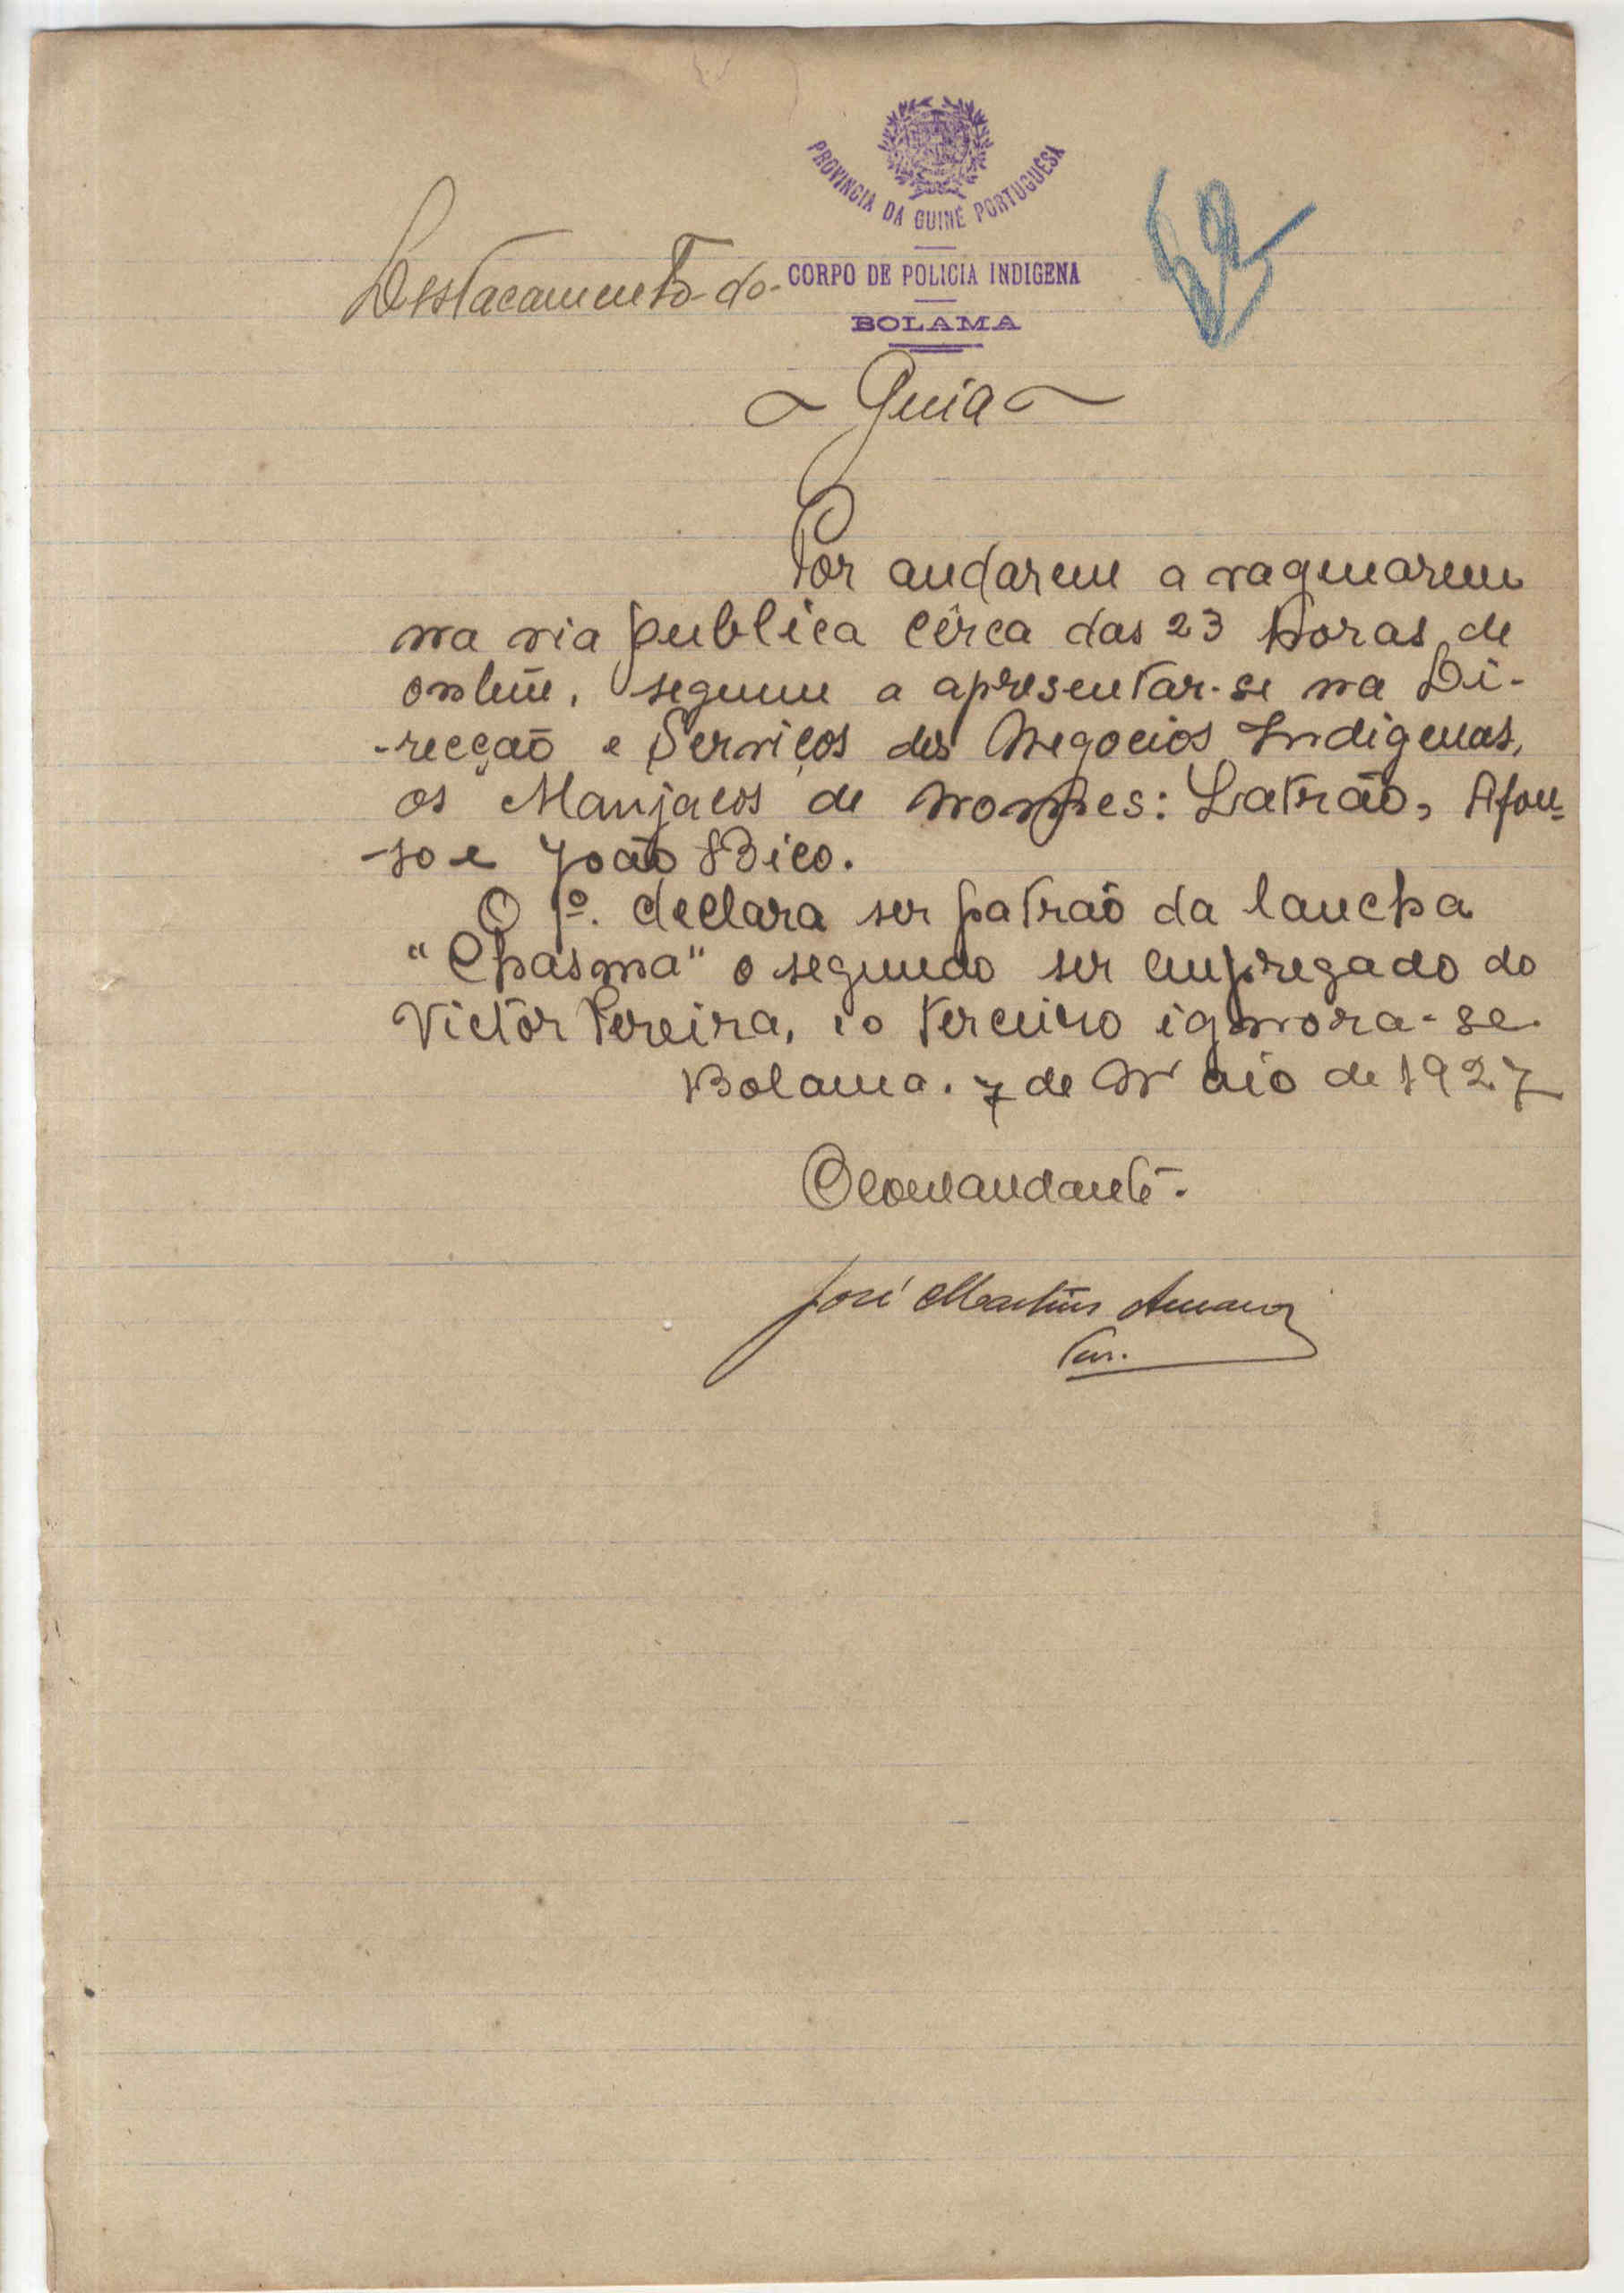 PROVINCIA DA GUINÉ PORTUGUÊSA
Destacamento do CORPO DE POLICIA INDIGENA
BOLAMA
Guia
Por andarem a vaguearem
na via publica cêrca das 23 horas de
ontem, seguem a apresentar-se na Di-
-recção e Serviços dos Negocios Indigenas,
os Manjacos de nomes: Latrão, Afon-
-so e João Bico.
O 1º. declara ser patrão da lancha
"Chasma" o segundo ser empregado do
Victor Pereira, e o terceiro ignora-se.
Bolama. 7 de Maio de 1927
O Comandante.
José Martins